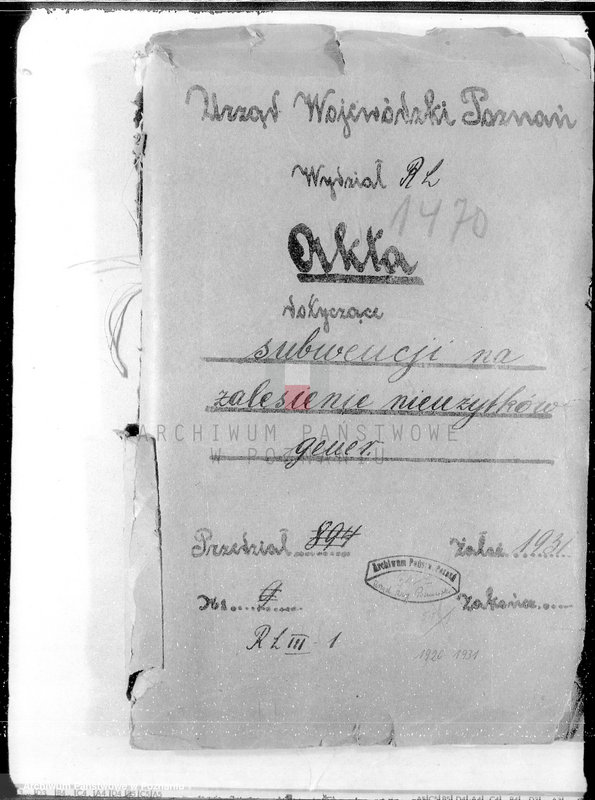 Urząd Wojewódzki Poznań
Wydział R L
1470
Akta
dotyczące
subwencji na
zalesienie nieużytków
gener.
ARCHIWUM PAŃSTWOWE
W POZNANIU
Przedział 894
Założ. 1931
Archiwum Państw. Poznań
Nr. 9
Zakończ.
R L III - 1
1920 1931
Archiwum Państwowe w Poznaniu